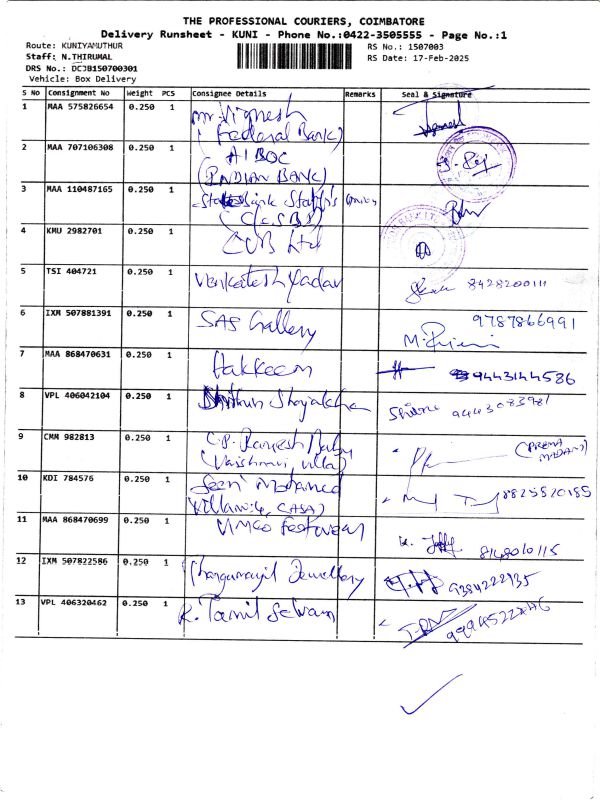 THE PROFESSIONAL COURIERS, COIMBATORE
Delivery Runsheet - KUNI - Phone No.:0422-3505555 - Page No.:1
Route: KUNIYAMUTHUR
RS No.: 1507003
Staff: N.THIRUMAL
RS Date: 17-Feb-2025
DRS No.: DCJB150700301
Vehicle: Box Delivery
S No Consignment No Weight PCS Consignee Details Remarks Seal & Signature
1 MAA 575826654 0.250 1 Mr. Vignesh
(Federal Bank)
2 MAA 707106308 0.250 1 AIBOC
(INDIAN BANK)
3 MAA 110487165 0.250 1 State Bank Staff's Union
4 KMU 2982701 0.250 1 CUB Ltd
5 TSI 404721 0.250 1 Venkatesh Yadav 8428200111
6 IXM 507881391 0.250 1 SAS Gallery 9787866991
7 MAA 868470631 0.250 1 Hakkeem 9443144586
8 VPL 406042104 0.250 1 9443083981
9 CMM 982813 0.250 1 C.P. Ramesh Babu
(Vaishnavi villa)
10 KDI 784576 0.250 1 Mohamed 8825820185
11 MAA 868470699 0.250 1 8148010115
12 IXM 507822586 0.250 1 Thangamayil Jewellery 9384222935
13 VPL 406320462 0.250 1 K. Tamil Selvam